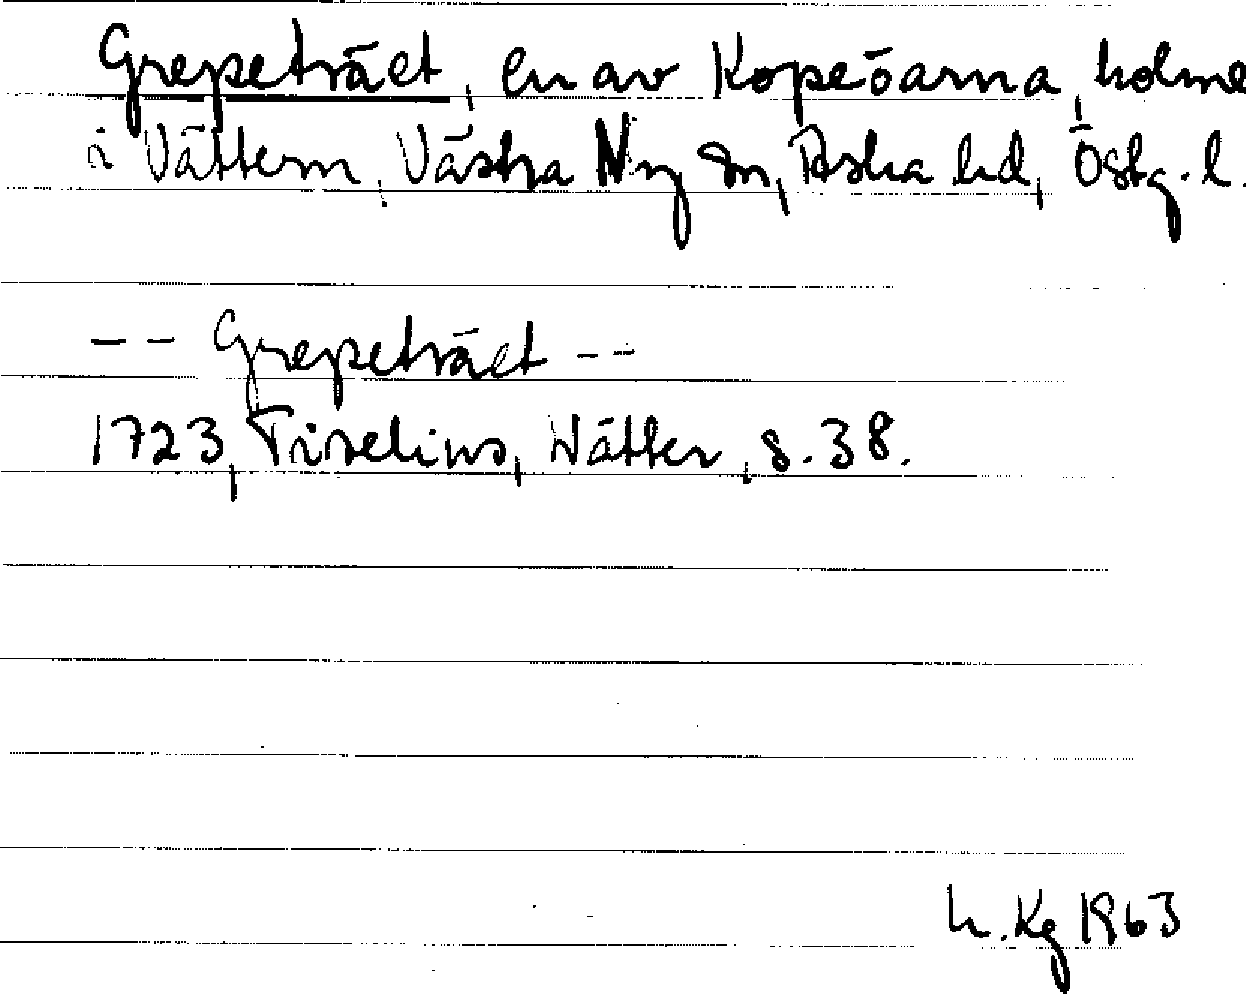 Grepeträet, en av Kopeöarna, holme
i Vättern, Västra Ny sn, Aska hd, Östg. l.
-- Grepeträet --
1723, Tiselius, Wätter, s. 38.
h. Kg 1963